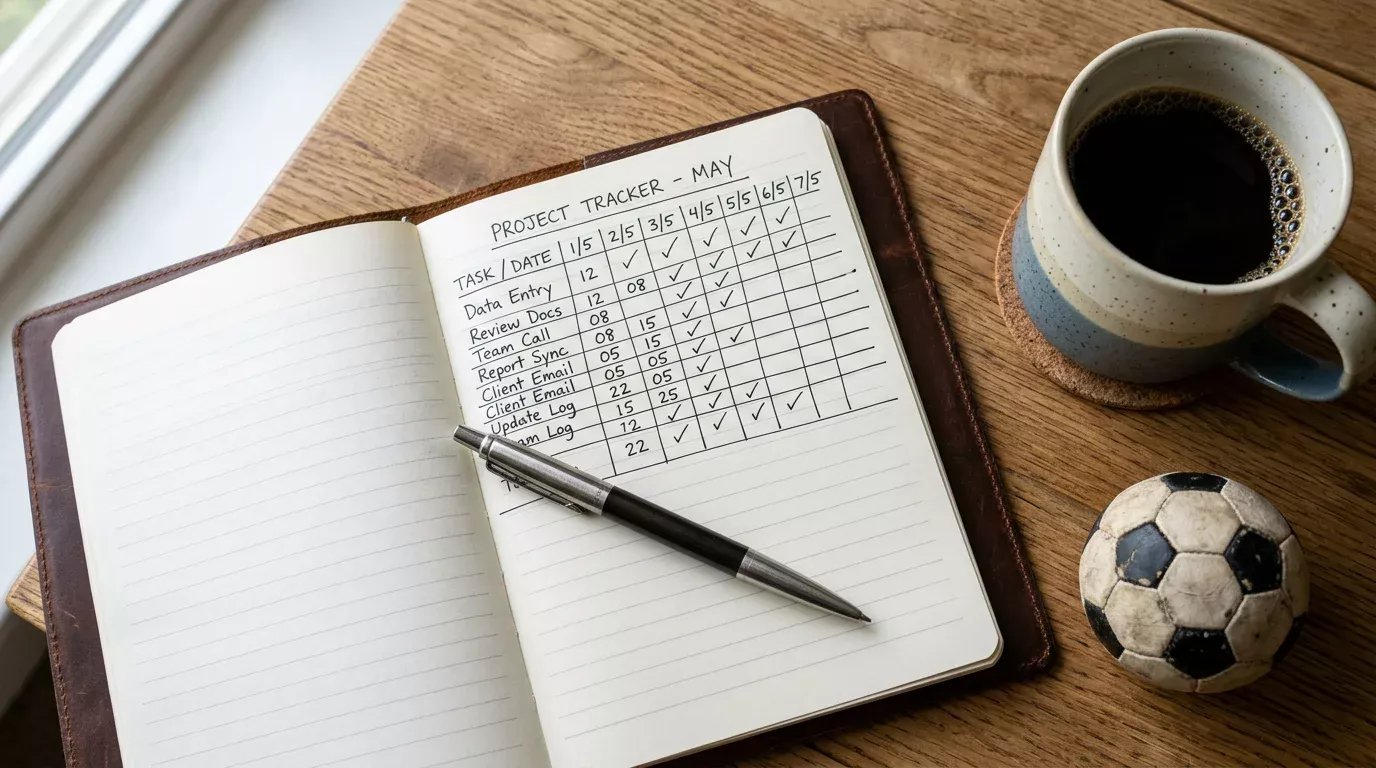 PROJECT TRACKER - MAY
TASK / DATE 1/5 2/5 3/5 4/5 5/5 6/5 7/5
Data Entry 12 ✓ ✓ ✓ ✓ ✓
Review Docs 12 08 ✓ ✓ ✓ ✓
Team Call 08 ✓ ✓
Report Sync 08 15 ✓
Client Email 05 15 ✓ ✓
Client Email 05 05 ✓
Update Log 22 05 ✓
Log 15 25 ✓ ✓ ✓
12 ✓ ✓ ✓ ✓
22